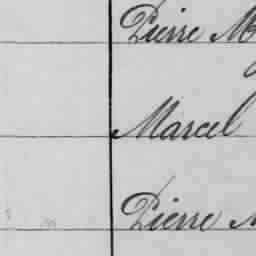 Pierre M
Marcel
Pierre